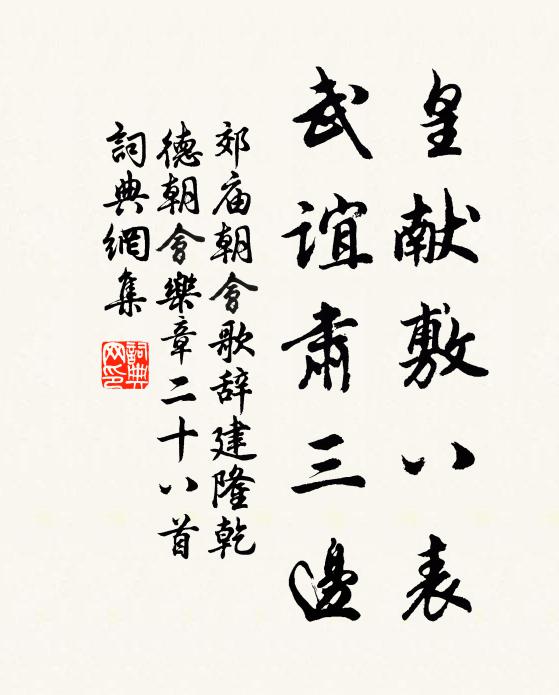 皇献敷八表
武谊肃三邊
郊庙朝會歌辞建隆乾
德朝會樂章二十八首
詞典網集
詞典網印